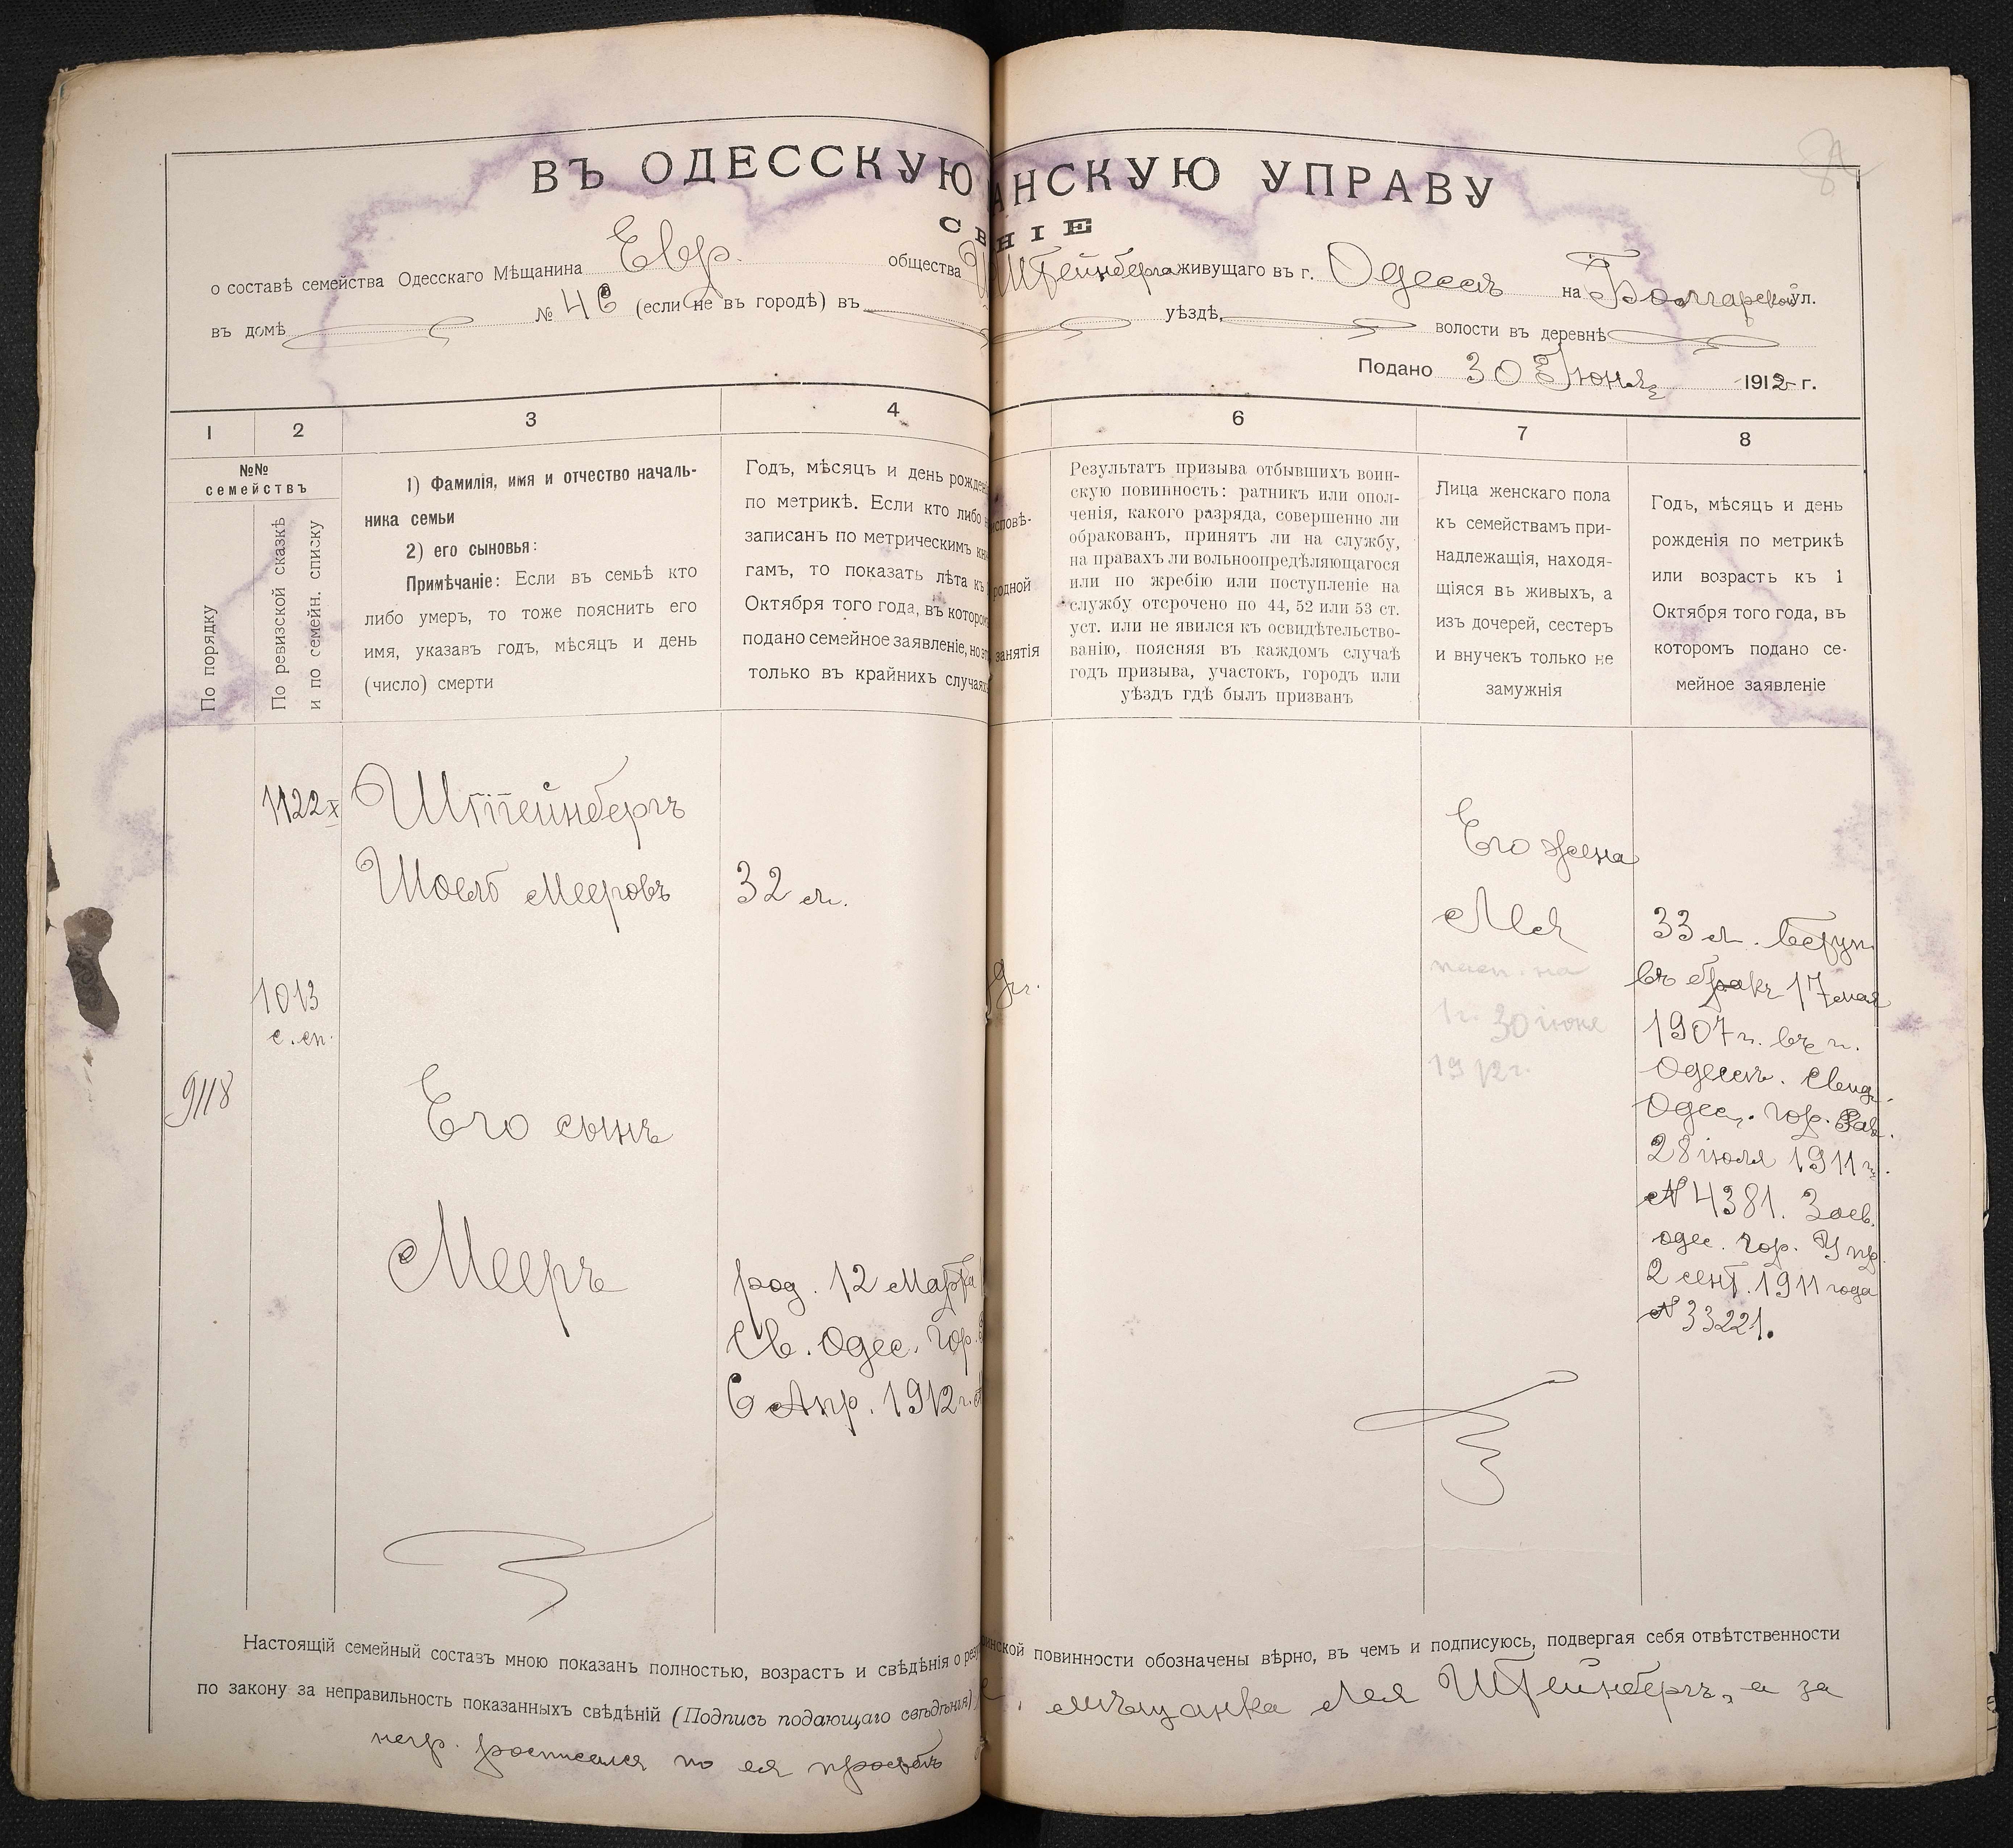 ВЪ ОДЕССКУЮ АНСКУЮ УПРАВУ
СВ НІЕ
о составѣ семейства Одесскаго Мѣщанина Евр. общества Штейнберга живущаго въ г. Одессѣ на Болгарской ул.
въ домѣ № 46 (если не въ городѣ) въ уѣздѣ, волости въ деревнѣ
Подано 30 Іюня 1912 г.
1 2 3 4 6 7 8
№№
семействъ
По порядку
По ревизской сказкѣ
и по семейн. списку
1) Фамилія, имя и отчество началь-
ника семьи
2) его сыновья:
Примѣчаніе: Если въ семьѣ кто
либо умеръ, то тоже пояснить его
имя, указавъ годъ, мѣсяцъ и день
(число) смерти
Годъ, мѣсяцъ и день рожден
по метрикѣ. Если кто либо
записанъ по метрическимъ кн
гамъ, то показать лѣта къ
Октября того года, въ котором
подано семейное заявленіе, но эт
только въ крайнихъ случаях
исповѣ-
родной
занятія
Результатъ призыва отбывшихъ воин-
скую повинность: ратникъ или опол-
ченія, какого разряда, совершенно ли
обракованъ, принятъ ли на службу,
на правахъ ли вольноопредѣляющагося
или по жребію или поступленіе на
службу отсрочено по 44, 52 или 53 ст.
уст. или не явился къ освидѣтельство-
ванію, поясняя въ каждомъ случаѣ
годъ призыва, участокъ, городъ или
уѣздъ гдѣ былъ призванъ
Лица женскаго пола
къ семействамъ при-
надлежащія, находя-
щіяся въ живыхъ, а
изъ дочерей, сестеръ
и внучекъ только не
замужнія
Годъ, мѣсяцъ и день
рожденія по метрикѣ
или возрастъ къ 1
Октября того года, въ
которомъ подано се-
мейное заявленіе
1122
Штейнбергъ
Шоелъ Мееровъ
32 л.
1013
с. сп.
9118
Его сынъ
Мееръ
род. 12 Марта
Св. Одес. Гор.
6 Апр. 1912 г.
Его жена
Лея
пасп. на
1 г. 30 іюня
1912 г.
33 л. Вступ.
въ бракъ 17 мая
1907 г. въ г.
Одессѣ. Свид.
Одес. гор. Рав.
28 іюля 1911 г.
№ 4381. Засв.
одес. гор. Упр.
2 сент. 1911 года
№ 33221.
Настоящій семейный составъ мною показанъ полностью, возрастъ и свѣдѣнія о рез инской повинности обозначены вѣрно, въ чемъ и подписуюсь, подвергая себя отвѣтственности
по закону за неправильность показанныхъ свѣдѣній (Подпись подающаго свѣдѣнія) мѣщанка Лея Штейнбергъ, а за
негр. росписался по ея просьбѣ